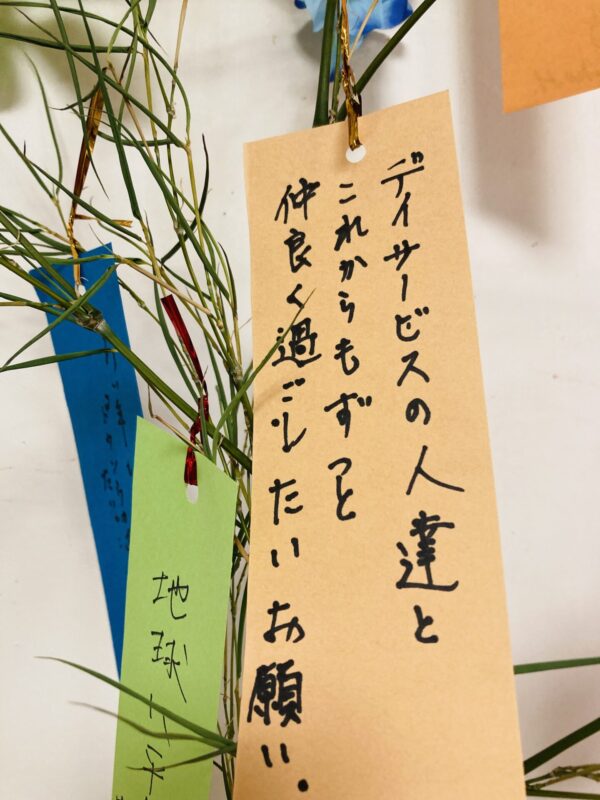 デイサービスの人達と
これからもずっと
仲良く過ごしたいお願い.
地球